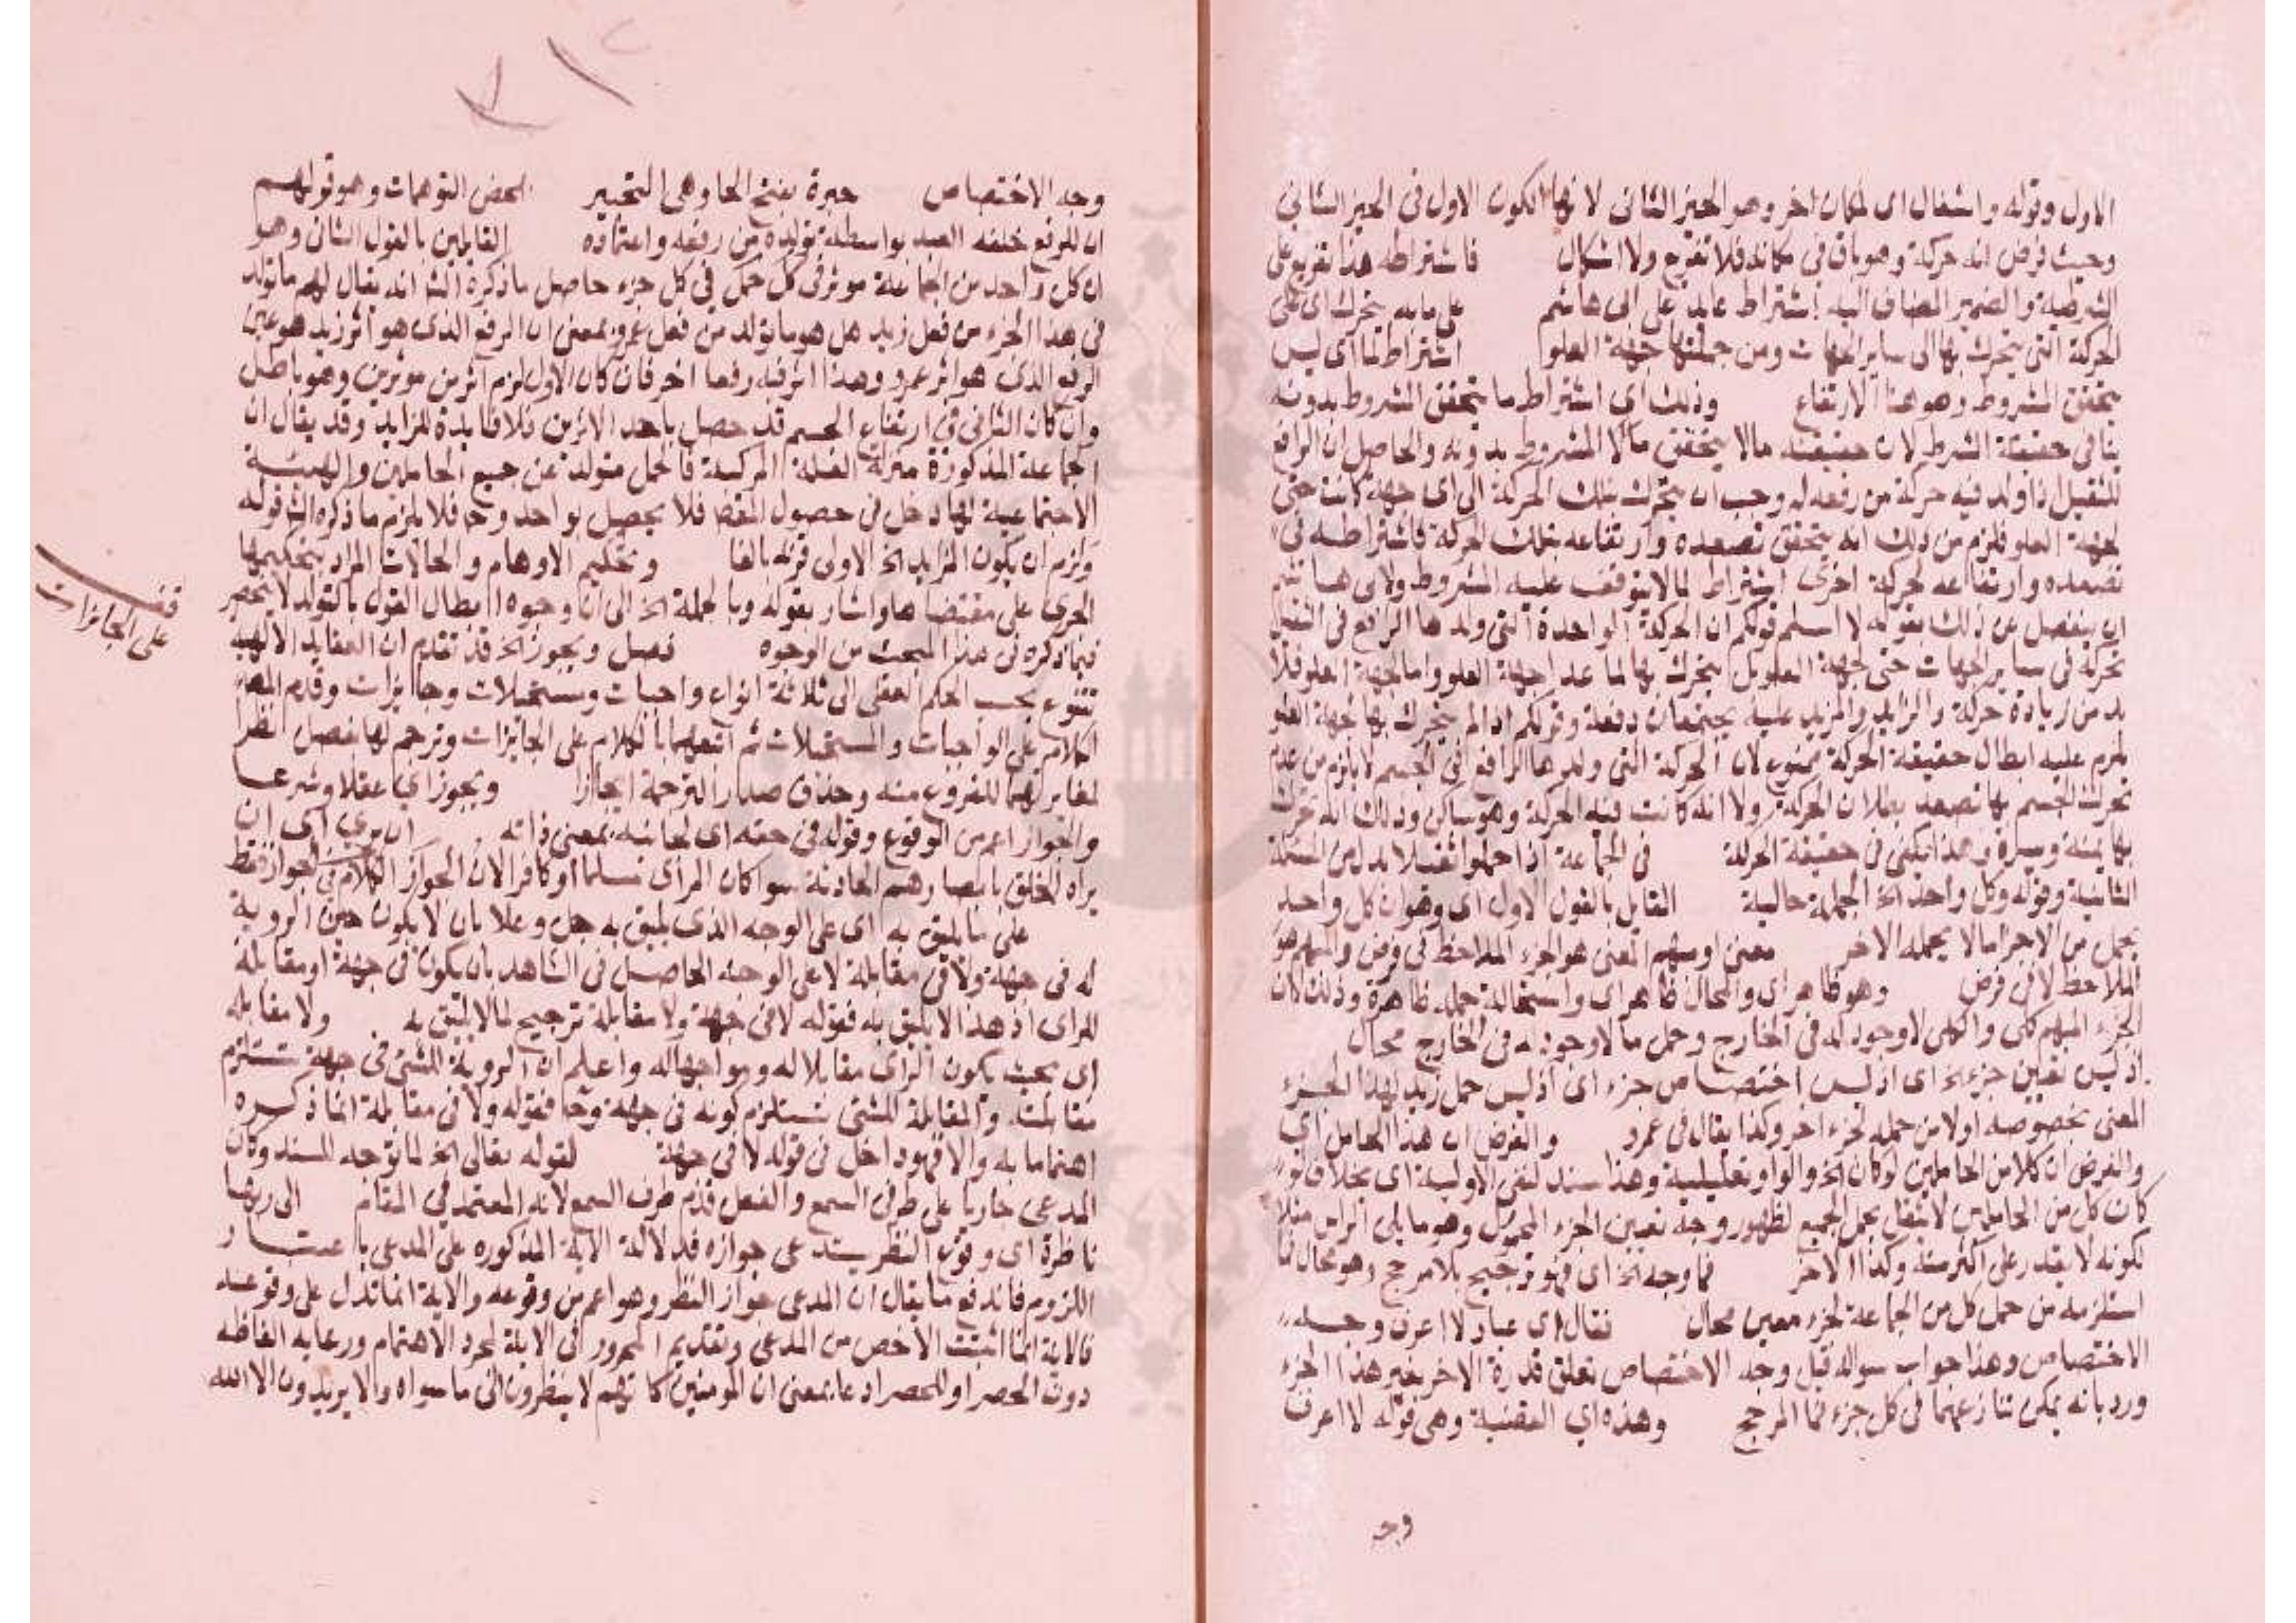 الاول وقوله واشغال اى لمكان اخر وهو الحيز الثانى لانها الكون الاول فى الحيز الثانى
وحيث فرض انه حركة وهو باق فى مكانه فلا تفرغ ولا اشكال فاشتراطه هذا تفريع على
الشرطية والضمير المضاف اليه اشتراط عايد على ابى هاشم على ما به يتحرك اى على
الحركة التى يتحرك بها الى ساير الجهات ومن جملتها جهة العلو اشتراط لما اى ليس
يتحقق المشروط وهو هنا الارتفاع وذلك اى اشتراط ما يتحقق المشروط بدونه
ينافى حقيقة الشرط لان حقيقته مالا يتحقق المشروط بدونه والحاصل ان الرافع
للثقيل اذا ولد فيه حركة من رفعه له وجب ان يتحرك بتلك الحركة الى اى جهة كانت حتى
لجهة العلو فلزم من ذلك انه يتحقق تصعده وارتفاعه بتلك الحركة فاشتراطه فى
تصعده وارتفاعه لحركة اخرى اشتراط لما لا يتوقف عليه المشروط ولابى هاشم
ان ينفصل عن ذلك بقوله لا اسلم قولكم ان الحركة الواحدة التى ولدها الرافع فى الثقيل
تحركه فى ساير الجهات حتى لجهة العلو بل يتحرك بها لما عدا جهة العلو واما لجهة العلو فلا
بد من زيادة حركة والزايد والمزيد عليه يجتمعان دفعة وقولكم اذا لم يتحرك بها لجهة العلو
لزم عليه ابطال حقيقة الحركة ممنوع لان الحركة التى ولدها الرافع فى الجسم لا يلزم من عدم
تحرك الجسم بها تصعد بطلان الحركة ولا انه كانت فيه الحركة وهو ساكن وذلك انه تحرك
بها يمنة ويسرة وهذا يكفى فى حقيقة الحركة فى الجماعة اذا حملوا ثقيلا بدل من المسئلة
الثانية وقوله وكل واحد الخ الجملة حالية القايل بالقول الاول اى وهو ان كل واحد
يحمل من الاجزا مالا يحمله الاخر معنى او مبهم المعنى هو الجزء الملاحظ فى فرض والمبهم هو
الملاحظ لا فى فرض وهو ظاهر اى والمحال ظاهر اى واستحالة حمله ظاهرة وذلك لان
الجزء المبهم كلى والكلى لا وجود له فى الخارج وحمل مالا وجود له فى الخارج محال
اذ ليس تعيين جزء الخ اى اذ ليس اختصاص جزء اى اذ ليس حمل زيد لهذا الجزء
المعنى بخصوصه اولا من حمله لجزء اخر وكذا يقال فى عمرو والفرض ان هذا الحامل اى
والفرض ان كلا من الحاملين لو كان الخ والواو تعليلية وهذا سند لنفى الاولية اى بخلاف لو
كان كل من الحاملين لا يستقل بحمل الجميع لظهور وجه تعيين الجزء المحمول وهو ما يلى الراس مثلا
لكونه لا يقدر على اكثر منه وكذا الاخر فما وجه الخ اى فهو ترجيح بلا مرجح وهو محال فما
استلزمه من حمل كل من الجماعة لجزء معين محال فقال اى عباد لا اعرف وجه
الاختصاص وهذا جواب سواله قبل وجه الاختصاص تعلق قدرة الاخر بغير هذا الجزء
ورد بانه يمكن تنازعهما فى كل جزء فما المرجح وهذه اى القضية وهى قوله لا اعرف
وجه
وجه الاختصاص حيرة بفتح الحا وهى التحير لمحض التوهمات وهو قولهم
ان للرفع خلقه العبد بواسطة تولده من رفعه واعتماده القايلين بالقول الثانى وهو
ان كل واحد من الجماعة موثر فى كل حمل فى كل جزء حاصل ما ذكره الشا انه يقال لهم ما تولد
فى هذا الجزء من فعل زيد هل هو ما تولد من فعل عمرو بمعنى ان الرفع الذى هو اثر زيد هو عين
الرفع الذى هو اثر عمرو وهذا اثر فيه رفعا اخر فان كان الاول لزم اثر بين موثرين وهو باطل
وان كان الثانى فى ارتفاع الجسم قد حصل باحد الاثرين فلا فايدة للزايد وقد يقال ان
الجماعة المذكورة منزلة العلة المركبة فالحمل متولد عن جميع الحاملين والهيئة
الاجتماعية لها دخل فى حصول الفعل فلا يحصل بواحد وح فلا يلزم ما ذكره الش قوله
ولزم ان يكون الزايد الخ الاولى قوله بالفا وتحكيم الاوهام والحالات المراد بتحكيمها
الجرى على مقتضاها واشار بقوله وبالجملة الخ الى ان وجوه ابطال القول بالتولد لا تنحصر
فيما ذكره فى هذا المبحث من الوجوه فصل ويجوز الخ قد تقدم ان العقايد الالهية
تتنوع بحسب الحكم العقلى الى ثلاثة انواع واجبات ومستحيلات وجايزات وقدم المص
الكلام على الواجبات والمستحيلات ثم اتبعهما بالكلام على الجايزات وترجم لها بفصل نظرا
لمغايرتهما للفروع منه وحذف صدر الترجمة ايجازا ويجوز اى عقلا وشرعا
والجواز اعم من الوقوع وقوله فى حقه اى لجانبه بمعنى ذاته ان يرى اى ان
يراه الخلق بابصارهم الحادثة سوا كان المراى مسلما او كافرا لان الكلام فى الجواز فقط
على ما يليق به اى على الوجه الذى يليق به جل وعلا بان لا يكون حين الروية
له فى جهة ولا فى مقابلة لا على الوجه الحاصل فى الشاهد بان يكون فى جهة او مقابلة
للراى اذ هذا لا يليق به فقوله لا فى جهة ولا مقابلة ترجيح لما لا يليق به ولا مقابله
اى بحيث يكون الراى مقابلا له ومواجها له واعلم ان الروية للشئ فى جهة تستلزم
مقابلته والمقابلة للشئ تستلزم كونه فى جهة وح فقوله ولا فى مقابلة انما ذكره
اهتماما به والا فهو داخل فى قوله لا فى جهة لقوله تعالى الخ لما توجه السند وكان
المدعى جاريا على طرفى السمع والفعل قدم طرف السمع لانه المعتمد فى المقام الى ربها
ناظرة اى وقوع النظر يستدعى جوازه فدلالة الاية المذكوره على المدعى باعتبار
اللزوم فاندفع ما يقال ان المدعى جواز النظر وهو اعم من وقوعه والاية انما تدل على وقوعه
فالاية انما اثبتت الاخص من المدعى وتقديم المجرور فى الاية لمجرد الاهتمام ورعاية الفاظه
دون الحصر او للحصر ادعا بمعنى ان المومنين كانهم لا ينظرون الى ما سواه ولا يريدون الا الله
قف
على الجايزات